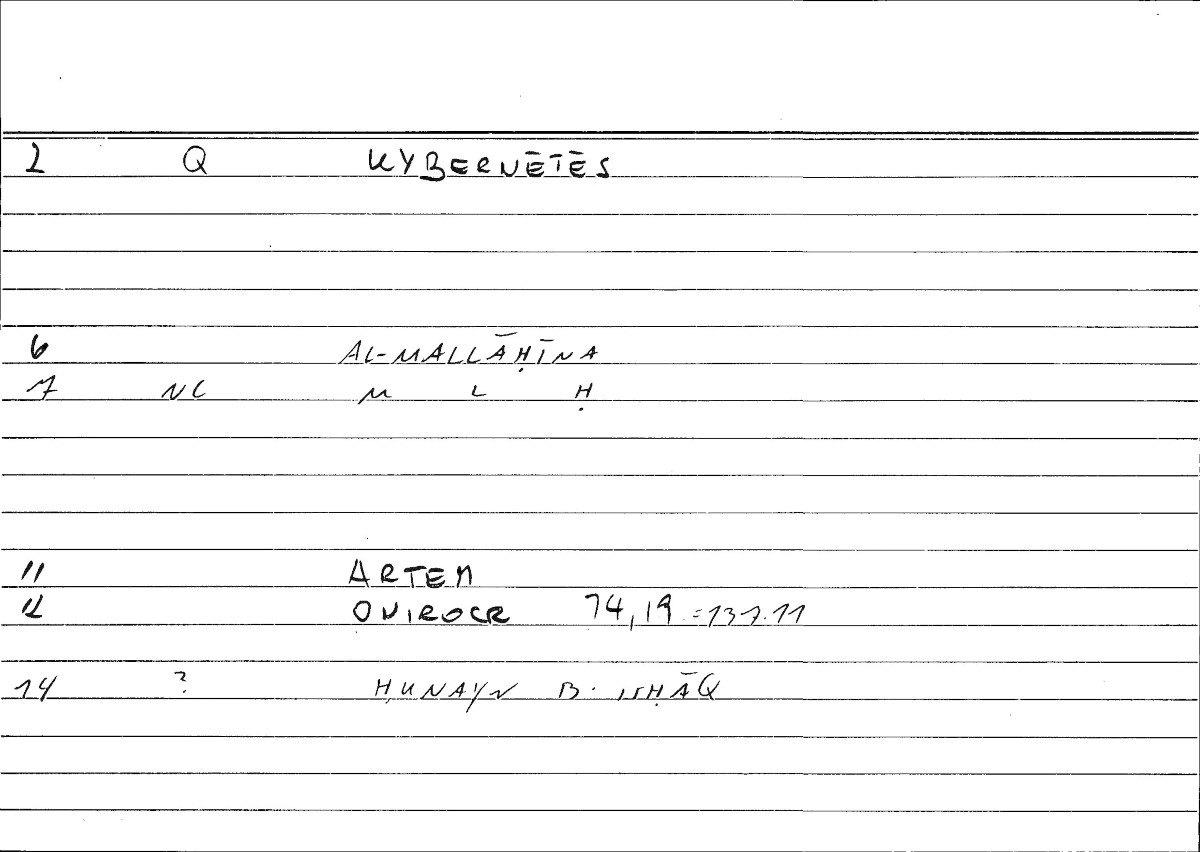 2 Q KYBERNĒTĒS
6 AL-MALLĀḤĪNA
7 NC M L Ḥ
11 ARTEM
12 ONIROCR 74,19 =137.11
14 ? ḤUNAYN B. ISḤĀQ